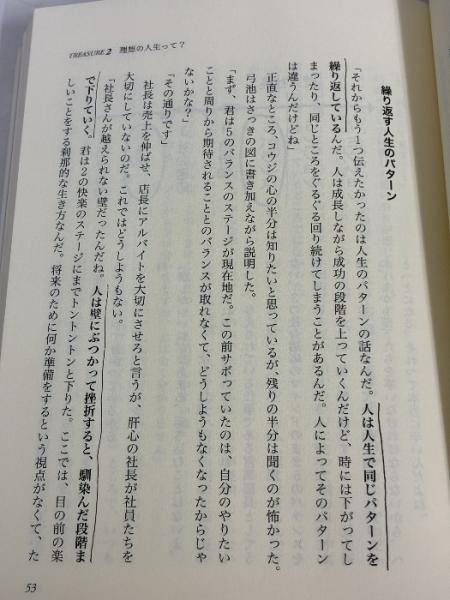 TREASURE 2 理想の人生って？
繰り返す人生のパターン
「それからもう1つ伝えたかったのは人生のパターンの話なんだ。人は人生で同じパターンを
繰り返しているんだ。人は成長しながら成功の段階を上っていくんだけど、時には下がってし
まったり、同じところをぐるぐる回り続けてしまうことがあるんだ。人によってそのパターン
は違うんだけどね」
正直なところ、コウジの心の半分は知りたいと思っているが、残りの半分は聞くのが怖かった。
弓池はさっきの図に書き加えながら説明した。
「まず、君は5のバランスのステージが現在地だ。この前サボっていたのは、自分のやりたい
ことと周りから期待されることとのバランスが取れなくて、どうしようもなくなったからじゃ
ないかな？」
「その通りです」
社長は売上を伸ばせ、店長にアルバイトを大切にさせろと言うが、肝心の社長が社員たちを
大切にしていないのだ。これではどうしようもない。
「社長さんが越えられない壁だったんだね。人は壁にぶつかって挫折すると、馴染んだ段階ま
で下りていく。君は2の快楽のステージにまでトントントンと下りた。ここでは、目の前の楽
しいことをする刹那的な生き方なんだ。将来のために何か準備をするという視点がなくて、た
53